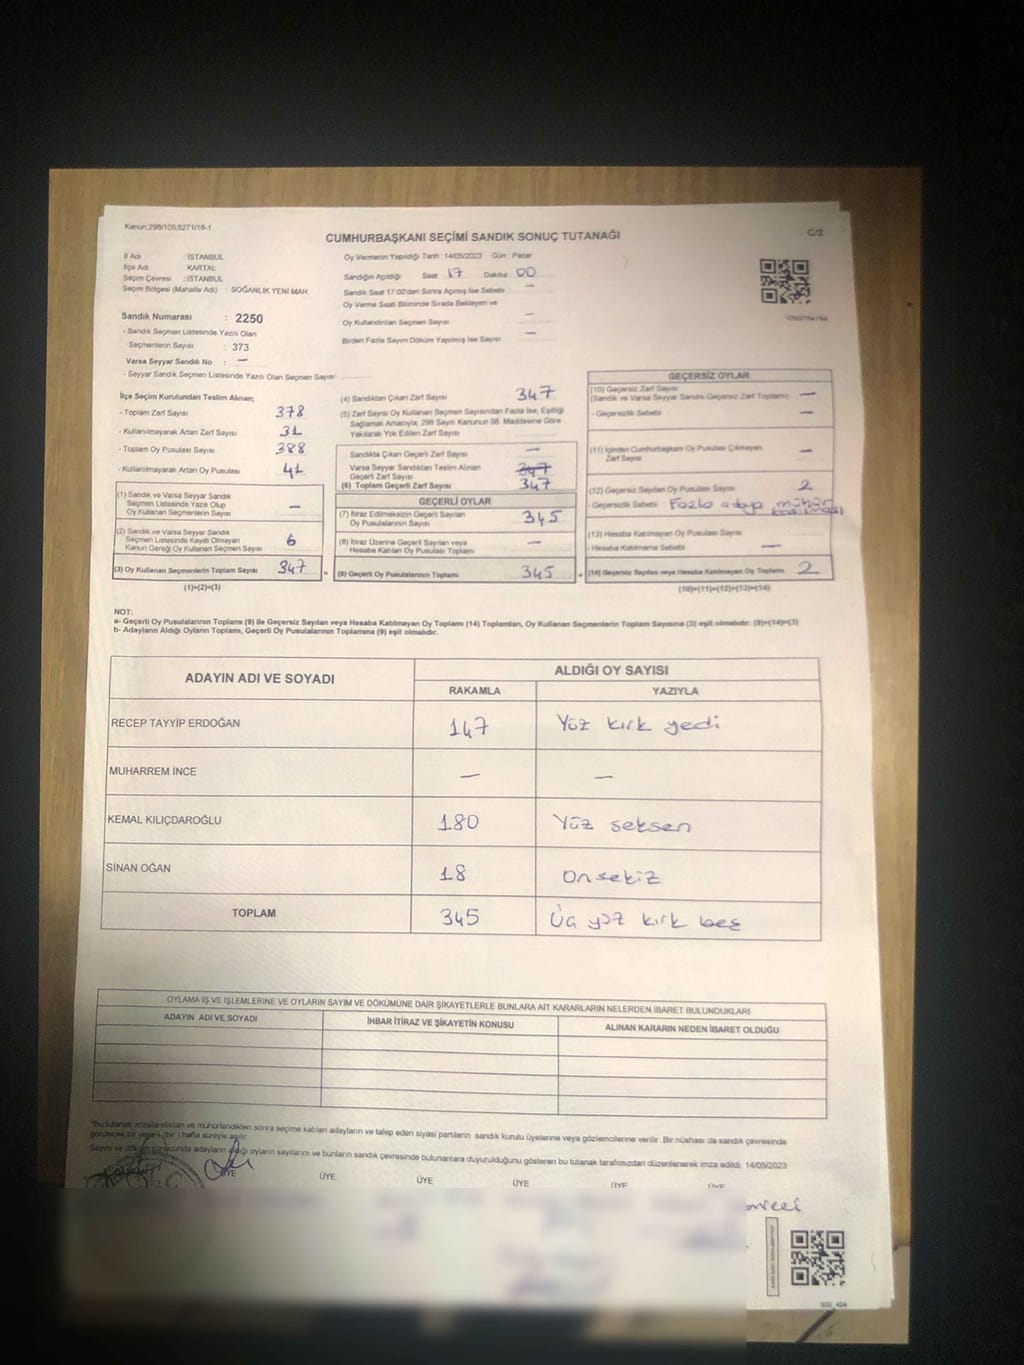 Kanun:298/105;6271/18-1
C/2
CUMHURBAŞKANI SEÇİMİ SANDIK SONUÇ TUTANAĞI
İl Adı : İSTANBUL
İlçe Adı : KARTAL
Seçim Çevresi : İSTANBUL
Seçim Bölgesi (Mahalle Adı) : SOĞANLIK YENİ MAH
Sandık Numarası : 2250
- Sandık Seçmen Listesinde Yazılı Olan
Seçmenlerin Sayısı : 373
Varsa Seyyar Sandık No : —
- Seyyar Sandık Seçmen Listesinde Yazılı Olan Seçmen Sayısı:
Oy Vermenin Yapıldığı Tarih :14/05/2023 Gün : Pazar
Sandığın Açıldığı Saat 17 Dakika 00
Sandık Saat 17:00'den Sonra Açılmış İse Sebebi —
Oy Verme Saati Bitiminde Sırada Bekleyen ve
Oy Kullandırılan Seçmen Sayısı —
Birden Fazla Sayım Döküm Yapılmış İse Sayısı —
İlçe Seçim Kurulundan Teslim Alınan;
- Toplam Zarf Sayısı 378
- Kullanılmayarak Artan Zarf Sayısı 31
- Toplam Oy Pusulası Sayısı 388
- Kullanılmayarak Artan Oy Pusulası 41
(1) Sandık ve Varsa Seyyar Sandık
Seçmen Listesinde Yazılı Olup
Oy Kullanan Seçmenlerin Sayısı —
(2) Sandık ve Varsa Seyyar Sandık
Seçmen Listesinde Kayıtlı Olmayan
Kanun Gereği Oy Kullanan Seçmen Sayısı 6
(3) Oy Kullanan Seçmenlerin Toplam Sayısı 347
(1)+(2)=(3)
(4) Sandıktan Çıkan Zarf Sayısı 347
(5) Zarf Sayısı Oy Kullanan Seçmen Sayısından Fazla İse, Eşitliği
Sağlamak Amacıyla; 298 Sayılı Kanunun 98. Maddesine Göre
Yakılarak Yok Edilen Zarf Sayısı
Sandıkta Çıkan Geçerli Zarf Sayısı —
Varsa Seyyar Sandıktan Teslim Alınan
Geçerli Zarf Sayısı 347
(6) Toplam Geçerli Zarf Sayısı 347
GEÇERLİ OYLAR
(7) İtiraz Edilmeksizin Geçerli Sayılan
Oy Pusulalarının Sayısı 345
(8) İtiraz Üzerine Geçerli Sayılan veya
Hesaba Katılan Oy Pusulası Toplamı —
(9) Geçerli Oy Pusulalarının Toplamı 345
GEÇERSİZ OYLAR
(10) Geçersiz Zarf Sayısı
(Sandık ve Varsa Seyyar Sandık Geçersiz Zarf Toplamı) —
- Geçersizlik Sebebi —
(11) İçinden Cumhurbaşkanı Oy Pusulası Çıkmayan
Zarf Sayısı —
(12) Geçersiz Sayılan Oy Pusulası Sayısı 2
- Geçersizlik Sebebi Fazla adaya mühür basılması
(13) Hesaba Katılmayan Oy Pusulası Sayısı
- Hesaba Katılmama Sebebi —
(14) Geçersiz Sayılan veya Hesaba Katılmayan Oy Toplamı 2
(10)+(11)+(12)+(13)=(14)
NOT:
a- Geçerli Oy Pusulalarının Toplamı (9) ile Geçersiz Sayılan ve Hesaba Katılmayan Oy Toplamı (14) Toplamları, Oy Kullanan Seçmenlerin Toplam Sayısına (3) eşit olmalıdır. (9)+(14)=(3)
b- Adayların Aldığı Oyların Toplamı, Geçerli Oy Pusulalarının Toplamına (9) eşit olmalıdır.
ADAYIN ADI VE SOYADI ALDIĞI OY SAYISI
RAKAMLA YAZIYLA
RECEP TAYYİP ERDOĞAN 147 Yüz kırk yedi
MUHARREM İNCE — —
KEMAL KILIÇDAROĞLU 180 Yüz seksen
SİNAN OĞAN 18 Onsekiz
TOPLAM 345 Üç yüz kırk beş
OYLAMA İŞ VE İŞLEMLERİNE VE OYLARIN SAYIM VE DÖKÜMÜNE DAİR ŞİKAYETLERLE BUNLARA AİT KARARLARIN NELERDEN İBARET BULUNDUKLARI
ADAYIN ADI VE SOYADI İHBAR İTİRAZ VE ŞİKAYETİN KONUSU ALINAN KARARIN NEDEN İBARET OLDUĞU
"Bu tutanak imzalandıktan ve mühürlendikten sonra seçime katılan adayların ve talep eden siyasi partilerin sandık kurulu üyelerine veya gözlemcilerine verilir. Bir nüshası da sandık çevresinde
görülecek bir yere 1 (bir ) hafta süreyle asılır
Sayım ve döküm sonucunda adayların aldığı oyların sayılarını ve bunların sandık çevresinde bulunanlara duyurulduğunu gösteren bu tutanak tarafımızdan düzenlenerek imza edildi. 14/05/2023
ÜYE ÜYE ÜYE ÜYE ÜYE ÜYE